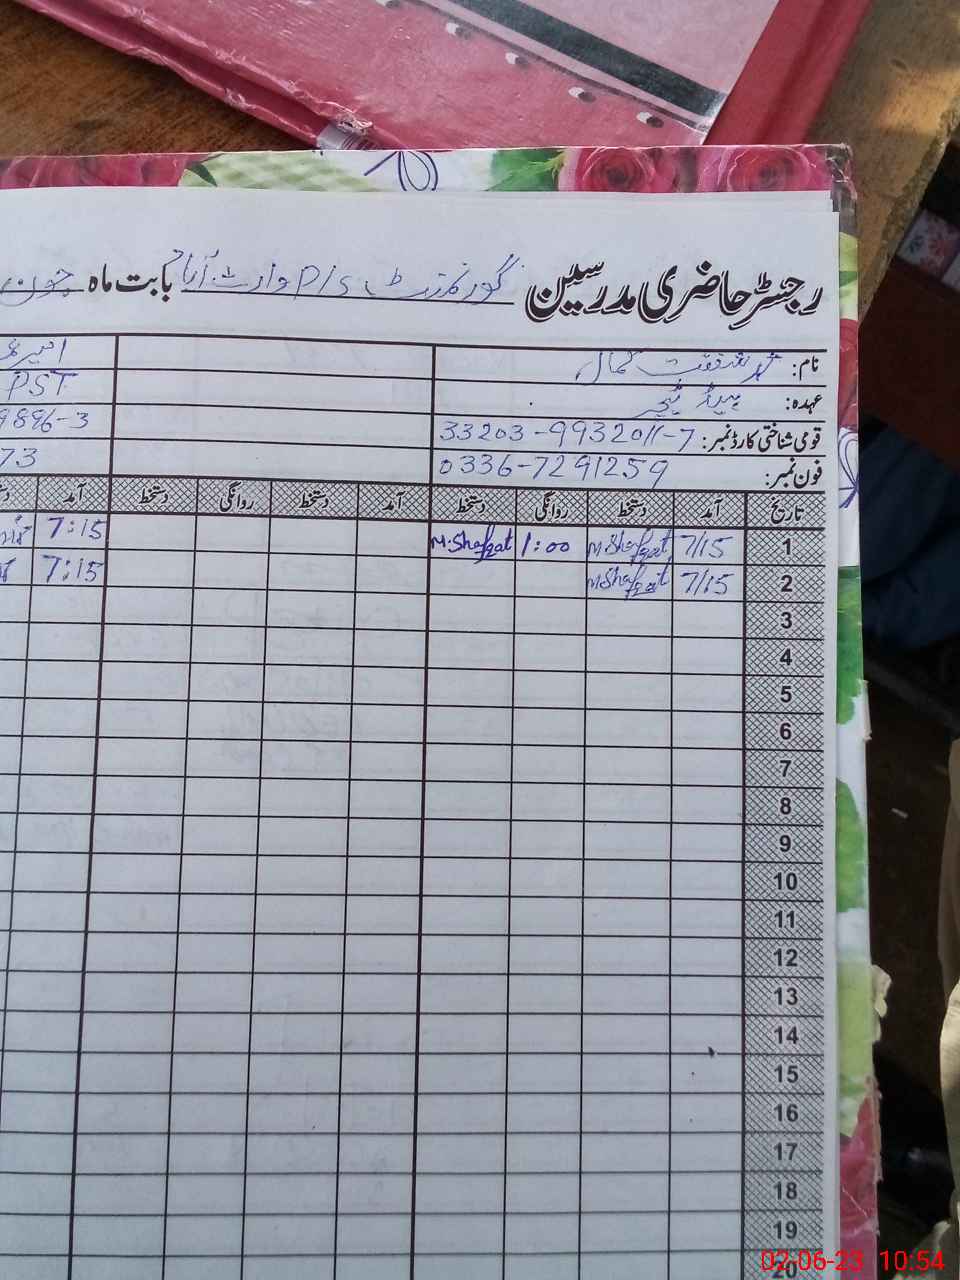 رجسٹر حاضری مدرسین گورنمنٹ P/S وارث آباد بابت ماہ جون
نام: محمد شفقت کمال امیر
عہدہ: ہیڈ ٹیچر PST
قومی شناختی کارڈ نمبر: 33203-9932011-7 9896-3
فون نمبر: 0336-7291259 73
تاریخ آمد دستخط روانگی دستخط آمد دستخط روانگی دستخط آمد
1 7/15 M.Shafqat 1:00 M.Shafqat 7:15
2 7/15 M.Shafqat 7:15
3
4
5
6
7
8
9
10
11
12
13
14
15
16
17
18
19
20
02-06-23 10:54